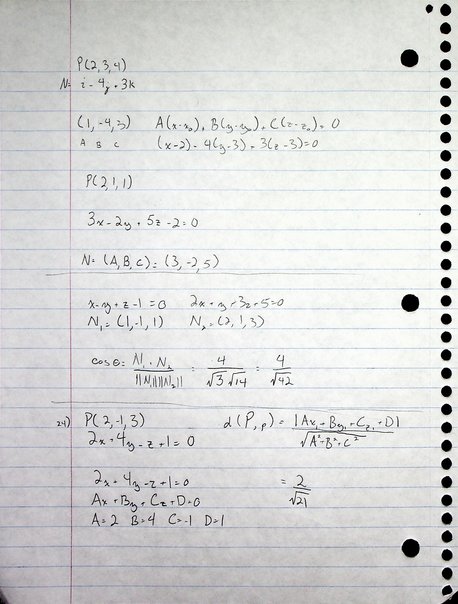 P(2,3,4)
N= i - 4j + 3k
(1,-4,3) A(x-x₀) + B(y-y₀) + C(z-z₀) = 0
A B C (x-2) - 4(y-3) + 3(z-3) = 0
P(2,1,1)
3x - 2y + 5z - 2 = 0
N = (A, B, C) = (3, -2, 5)
x - y + z - 1 = 0 2x + y + 3z + 5 = 0
N₁ = (1, -1, 1) N₂ = (2, 1, 3)
cos θ = N₁ · N₂ / ||N₁|| ||N₂|| = 4 / √3 √14 = 4 / √42
24) P(2,-1,3) d(P,p) = |Ax₁ + By₁ + Cz₁ + D| / √A² + B² + C²
2x + 4y - z + 1 = 0
2x + 4y - z + 1 = 0 = 2 / √21
Ax + By + Cz + D = 0
A = 2 B = 4 C = -1 D = 1